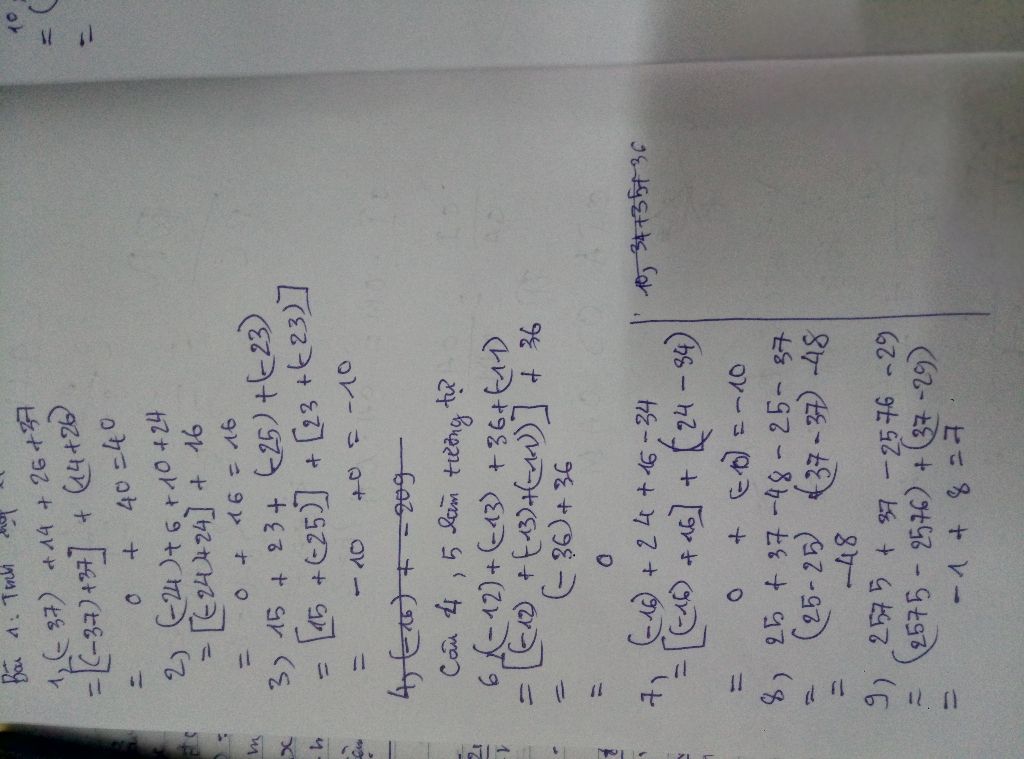 Bài 1: Tính
1, (-37) + 14 + 26 + 37
= [(-37) + 37] + (14 + 26)
= 0 + 40 = 40
2) (-24) + 6 + 10 + 24
= [(-24) + 24] + 16
= 0 + 16 = 16
3) 15 + 23 + (-25) + (-23)
= [15 + (-25)] + [23 + (-23)]
= -10 + 0 = -10
4, (-16) + - 209
Câu 4, 5 làm tương tự
6, (-12) + (-13) + 36 + (-11)
= [(-12) + (-13) + (-11)] + 36
= (-36) + 36
= 0
7, (-16) + 24 + 16 - 34
= [(-16) + 16] + (24 - 34)
= 0 + (-10) = -10
8) 25 + 37 - 48 - 25 - 37
= (25 - 25) + (37 - 37) - 48
= -48
9) 2575 + 37 - 2576 - 29
= (2575 - 2576) + (37 - 29)
= -1 + 8 = 7
10, 34 + 35 + 36
10,
= (
=